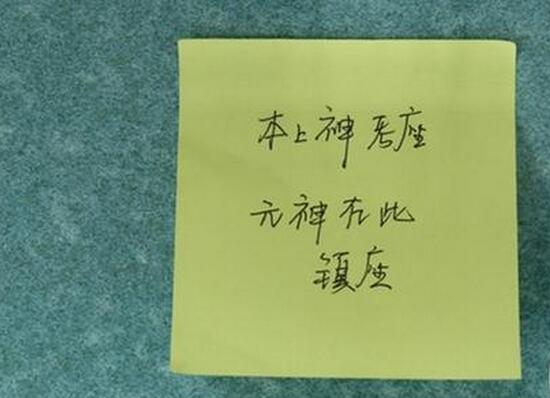 本上神宝座
元神在此
镇座